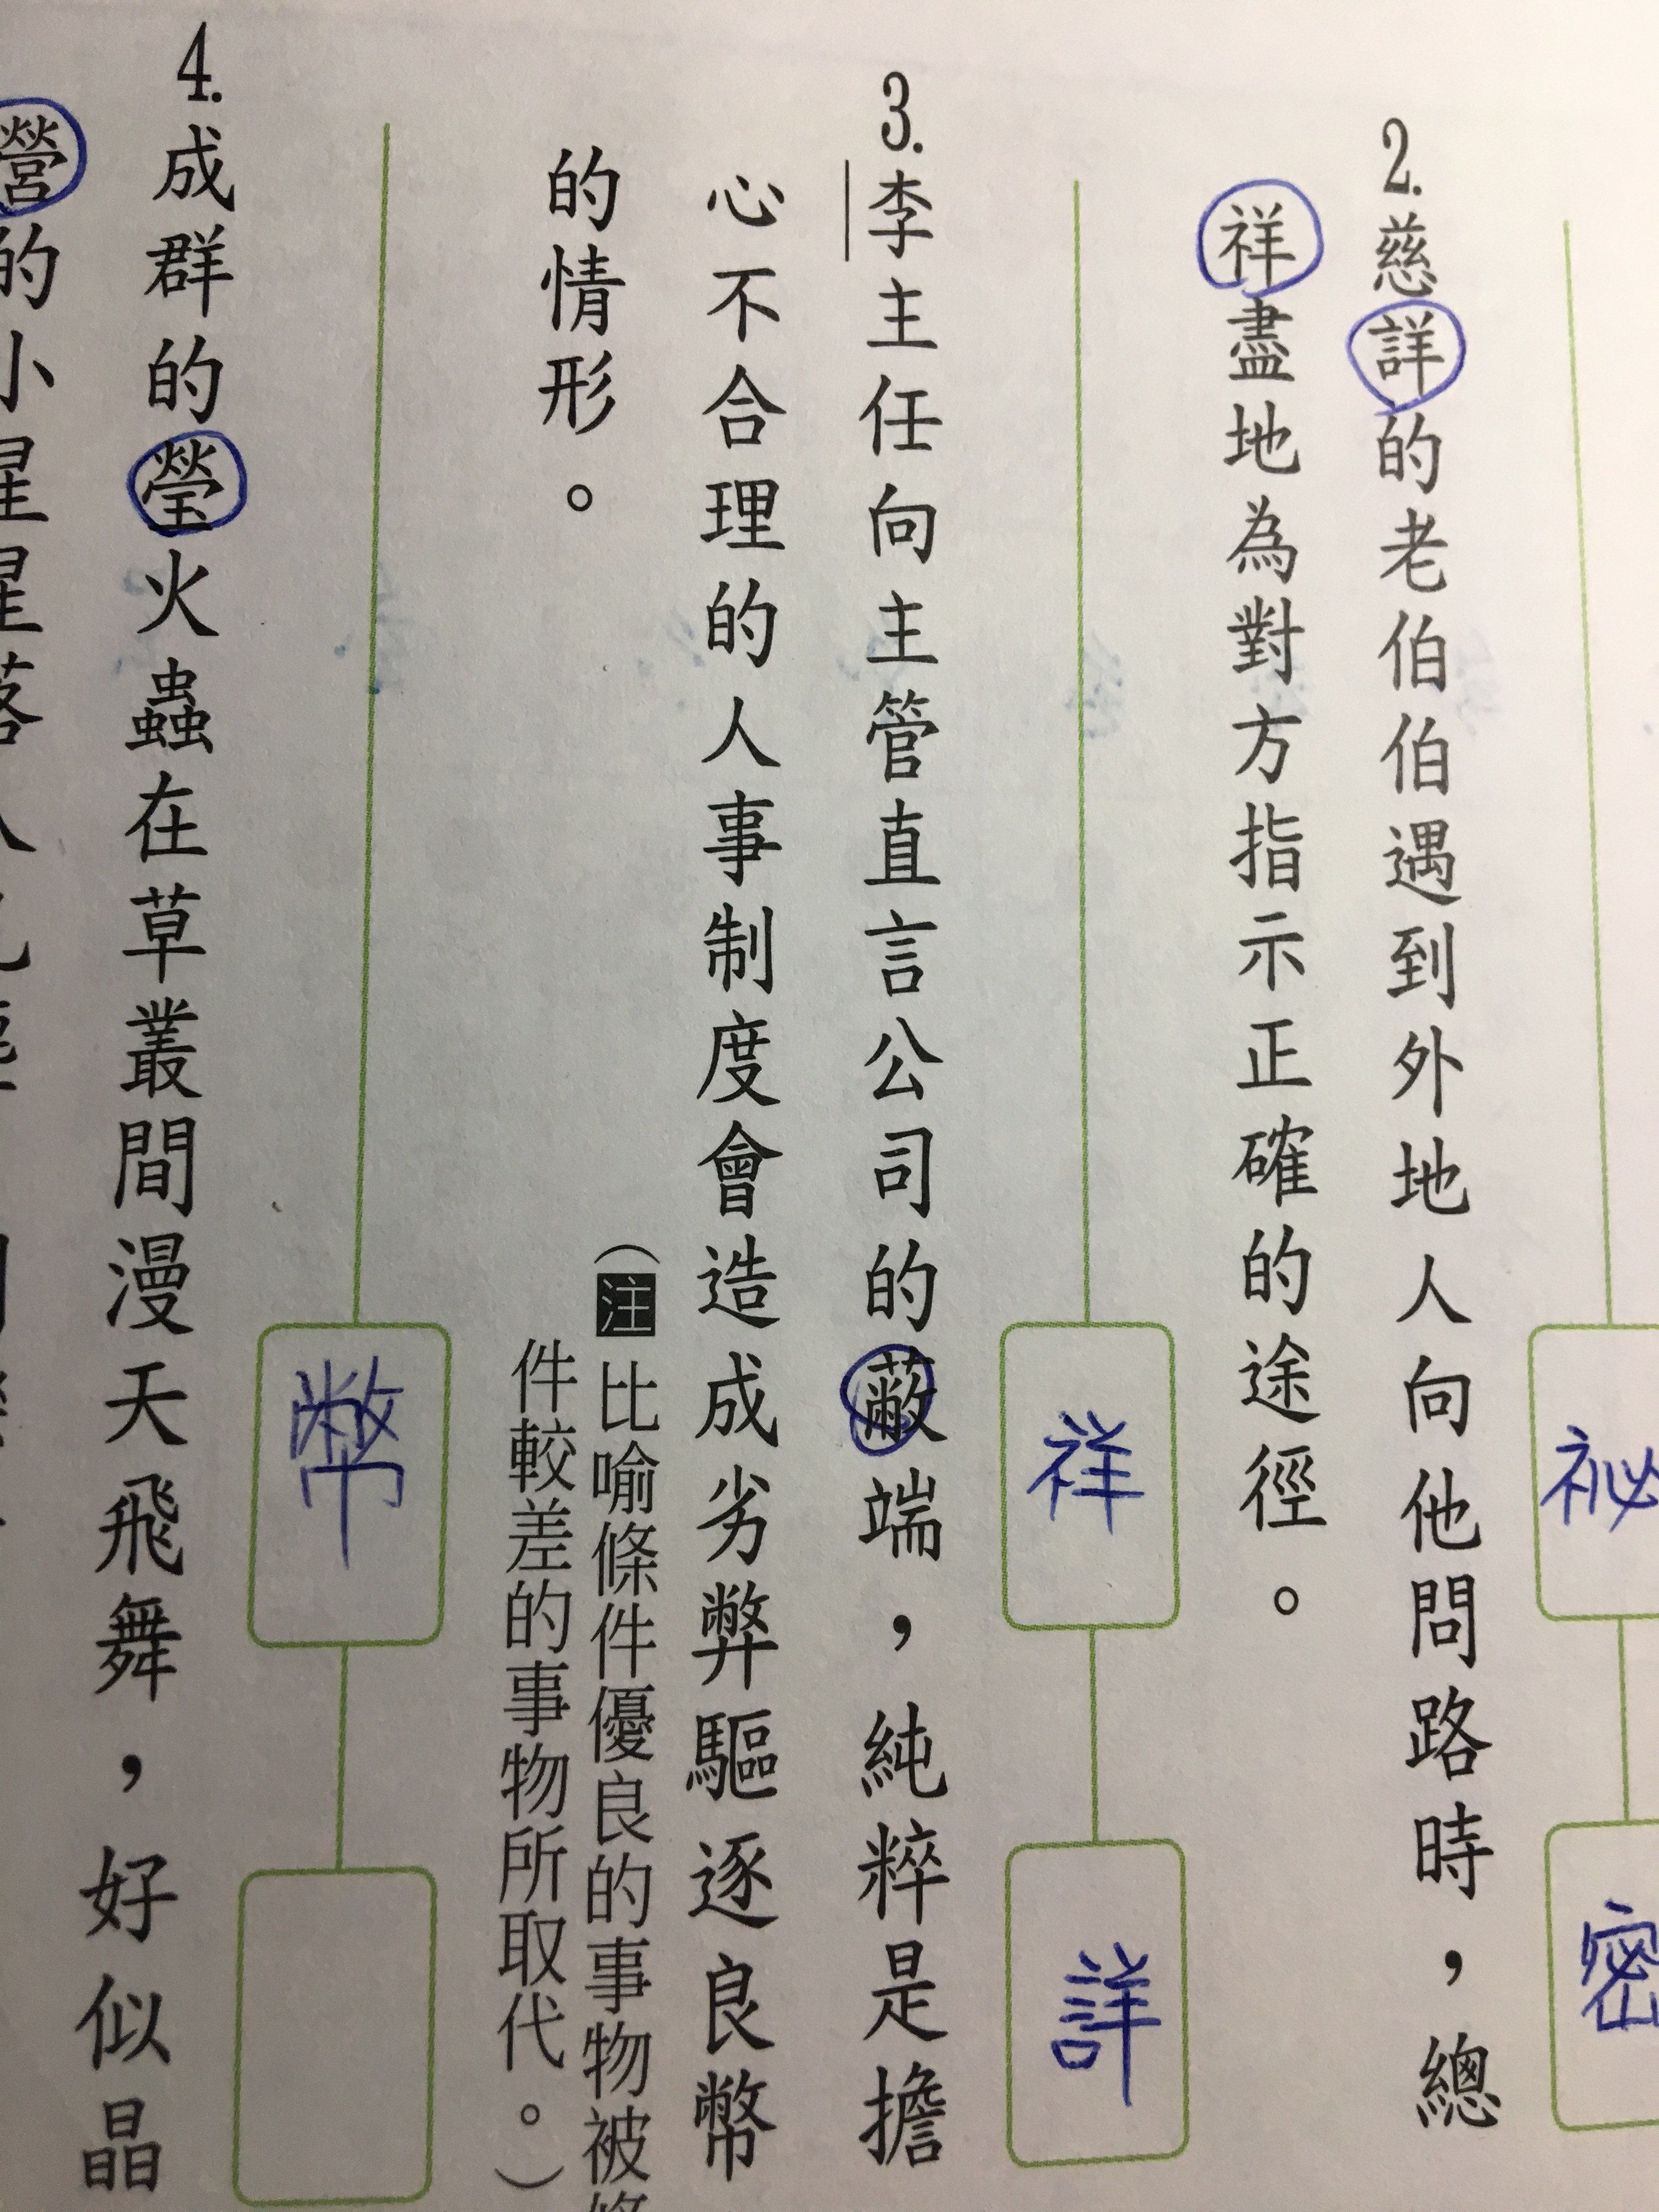 祕
密
2.慈詳的老伯伯遇到外地人向他問路時，總
祥盡地為對方指示正確的途徑。
祥
詳
3.李主任向主管直言公司的蔽端，純粹是擔
心不合理的人事制度會造成劣弊驅逐良幣
的情形。
（注比喻條件優良的事物被
件較差的事物所取代。）
幣
4.成群的瑩火蟲在草叢間漫天飛舞，好似晶
營的小星星落入